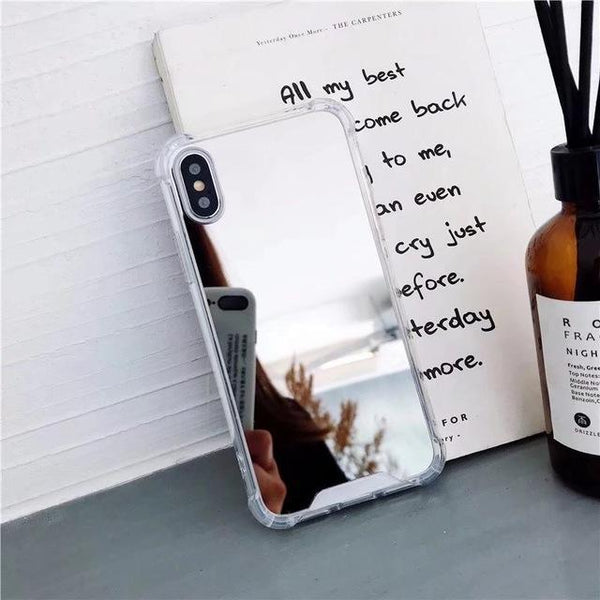 Yesterday Once More— THE CARPENTERS
All my best
come back
to me,
an even
cry just
efore.
terday
more.
FOR
ry •
FRA
NIGH
Fresh, Gree
Top Notes:
Middle Note
Geranium
Base Note
Benzoin, C
DRIZZLE